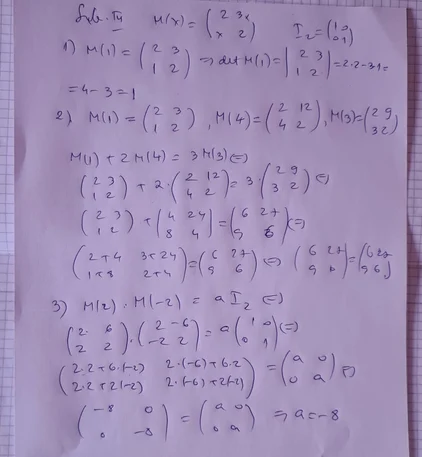 Sub. IV M(x) = (2 3x / x 2) I₂ = (1 0 / 0 1)
1) M(1) = (2 3 / 1 2) ⇒ det M(1) = |2 3 / 1 2| = 2·2-3·1=
=4-3=1
2) M(1) = (2 3 / 1 2), M(4) = (2 12 / 4 2), M(3) = (2 9 / 3 2)
M(1) + 2 M(4) = 3 M(3) (=)
(2 3 / 1 2) + 2·(2 12 / 4 2) = 3·(2 9 / 3 2) (=)
(2 3 / 1 2) + (4 24 / 8 4) = (6 27 / 9 6) (=)
(2+4 3+24 / 1+8 2+4) = (6 27 / 9 6) (=) (6 27 / 9 6) = (6 27 / 9 6)
3) M(2) · M(-2) = a I₂ (=)
(2 6 / 2 2) · (2 -6 / -2 2) = a (1 0 / 0 1) (=)
(2·2+6·(-2) 2·(-6)+6·2 / 2·2+2(-2) 2·(-6)+2(-2)) = (a 0 / 0 a) (=)
(-8 0 / 0 -8) = (a 0 / 0 a) ⇒ a=-8